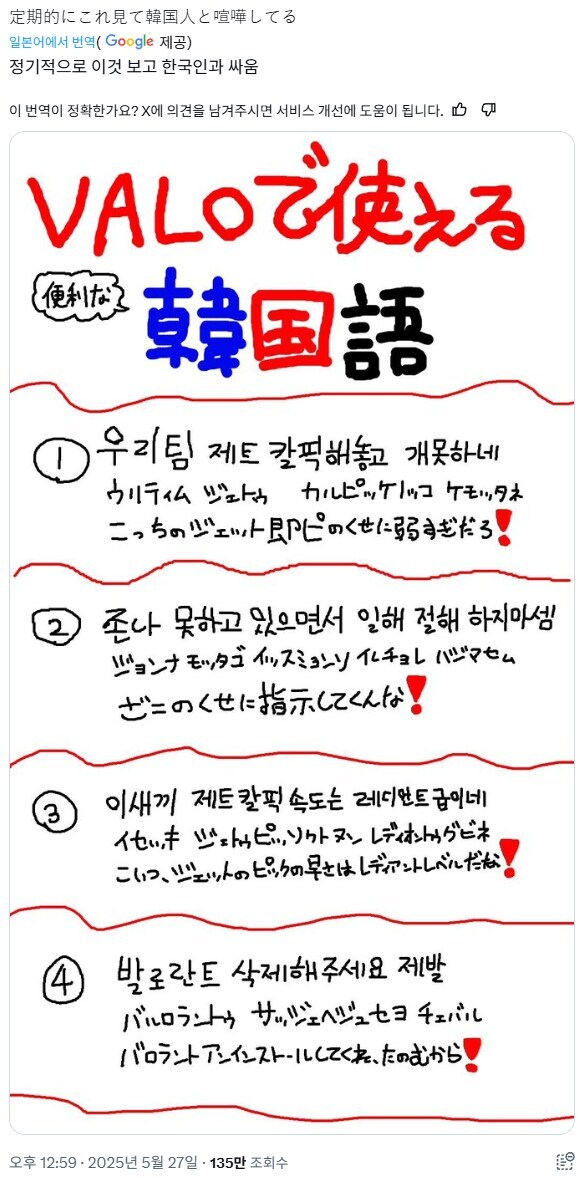 定期的にこれ見て韓国人と喧嘩してる
일본어에서 번역( Google 제공)
정기적으로 이것 보고 한국인과 싸움
이 번역이 정확한가요? X에 의견을 남겨주시면 서비스 개선에 도움이 됩니다.
VALOで使える
便利な
韓国語
① 우리팀 제트 칼픽해놓고 개못하네
ウリティム ジェトゥ カルピッケノッコ ケモッタネ
こっちのジェット即ピのくせに弱すぎだろ!
② 존나 못하고 있으면서 일해 절해 하지마셈
ジョンナ モッタゴ イッスミョンソ イルチョレ ハジマセム
ざこのくせに指示してくんな!
③ 이새끼 제트칼픽 속도는 레디언트급이네
イセッキ ジェトゥピッソクトヌン レディオントゥグビネ
こいつ、ジェットのピックの早さはレディアントレベルだな!
④ 발로란트 삭제해주세요 제발
バルロラントゥ サッジェヘジュセヨ チェバル
バロラントアンインストールしてくれ、たのむから!
오후 12:59 · 2025년 5월 27일 · 135만 조회수